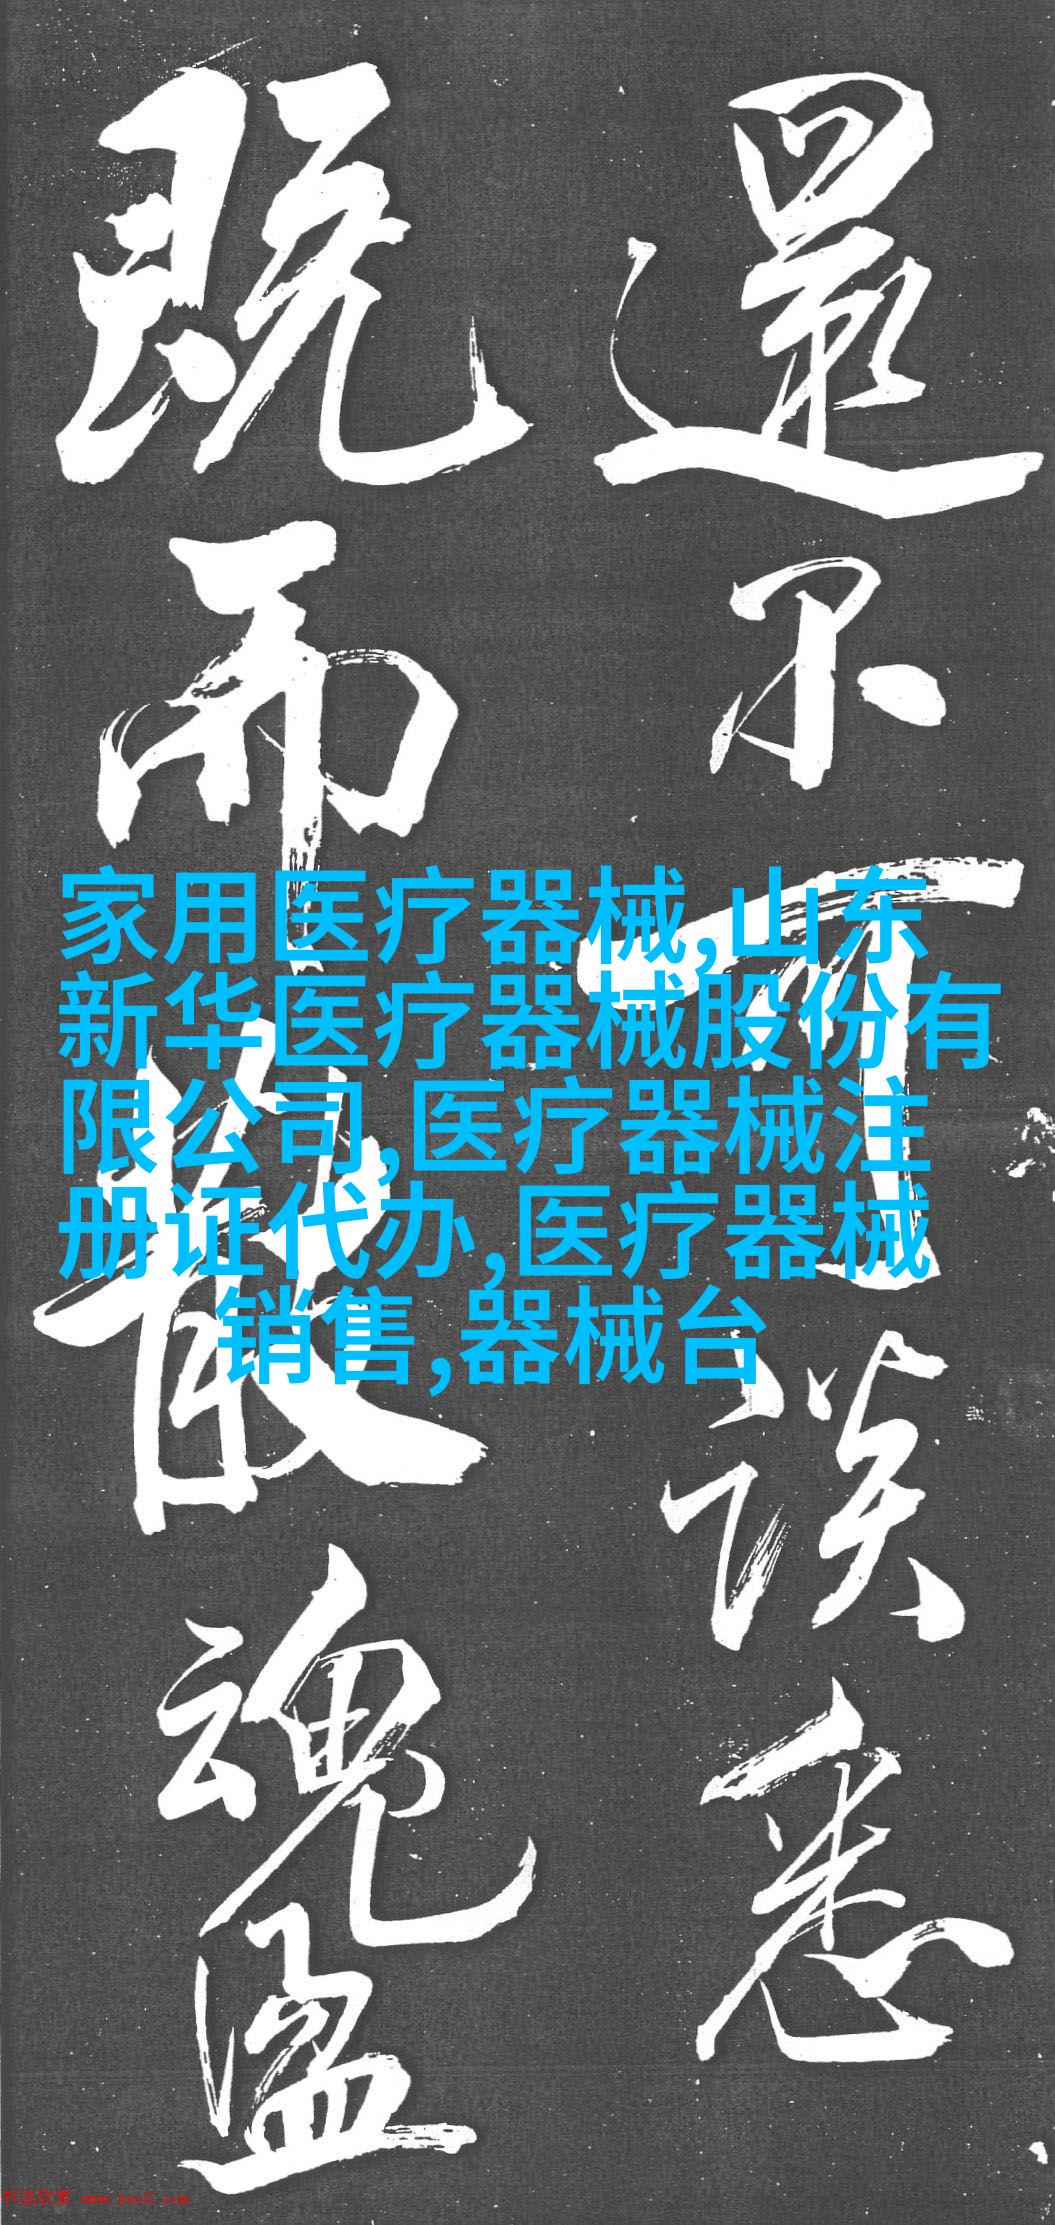 還不可談悉
既而散魂盪
家用医疗器械,山东
新华医疗器械股份有
限公司,医疗器械注
册证代办,医疗器械
销售,器械台
书法欣赏 www.yac8.com